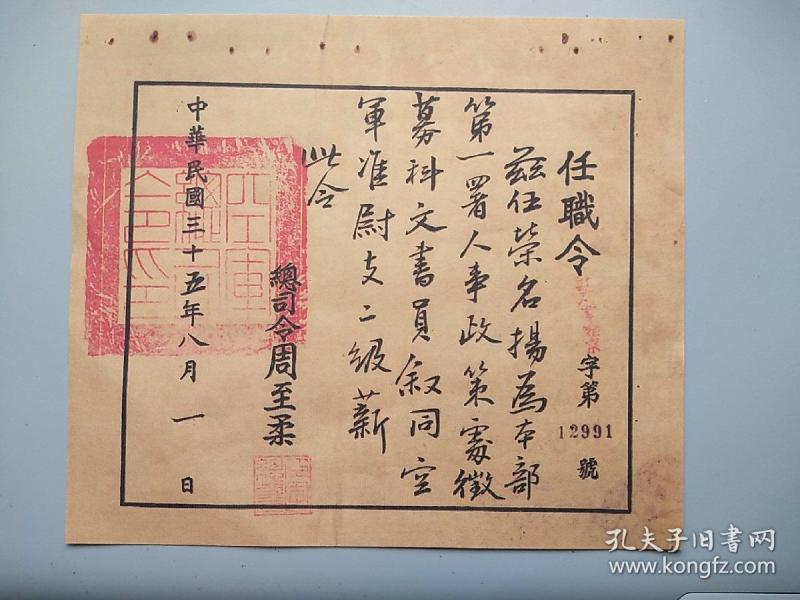 任職令
字第12991號
茲任榮名揚為本部
第一署人事政策處徵
募科文書員叙同空
軍准尉支二級薪
此令
總司令周至柔
中華民國三十五年八月一日
孔夫子旧书网
www.kongfz.com